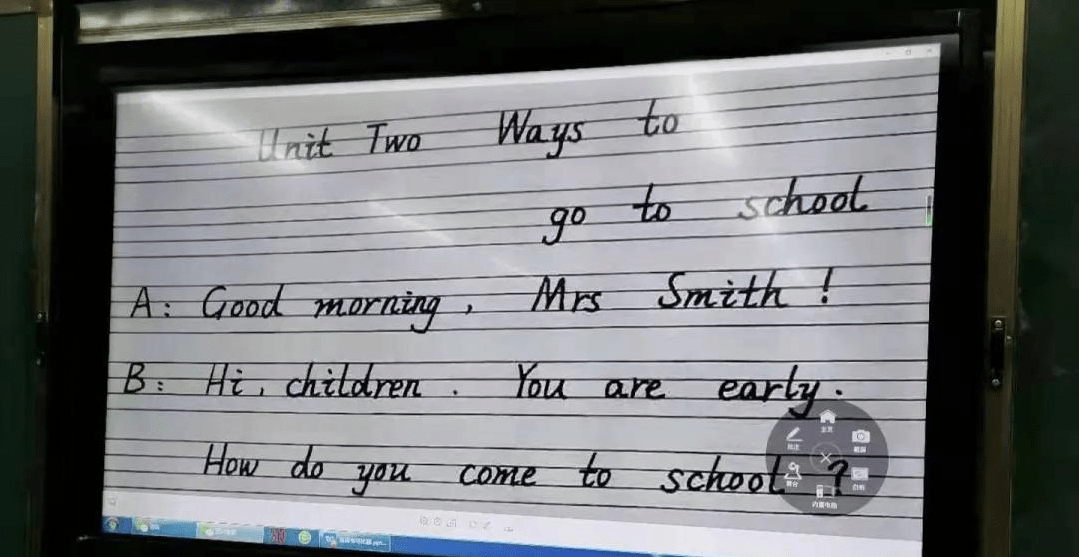 Unit Two Ways to
go to school
A: Good morning, Mrs Smith!
B: Hi, children. You are early.
How do you come to school?